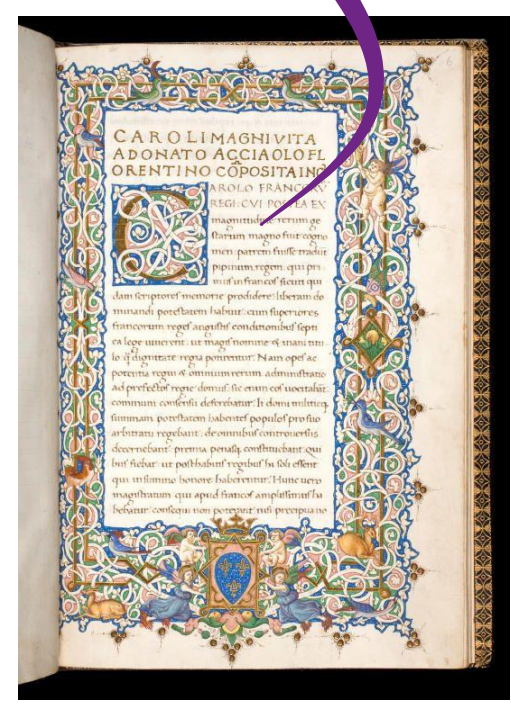 6
CAROLI MAGNI VITA
A DONATO ACCIAOLO FL
ORENTINO CŌPOSITA INC
AROLO FRANCORV
REGI: CVI POSTEA EX
magnitudine rerum ge
starum magno fuit cogno
men. patrem fuisse tradūt
pipinum regem. qui pri
mus in francos sicuti qui
dam scriptores memorie prodidere: liberam do
minandi potestatem habuit. cum superiores
francorum reges angustis conditionibus septi
ea lege uiuerent. ut magis nomine & inani titu
lo q̄ dignitate regia potirentur. Nam opes ac
potentia regni & omnium rerum administratio
ad prefectos regie domus: sic enim eos uocitabāt
communi consensu deferebatur. Ii domi militieq;
summam potestatem habentes populos pro suo
arbitratu regebant. de omnibus controuersiis
decernebant. premia penasq; constituebant. qui
bus fiebat: ut posthabitis regibus hi soli essent
qui in summo honore haberentur. Hunc uero
magistratum qui apud francos amplissimus ha
bebatur: consequi non poterant. nisi precipua no